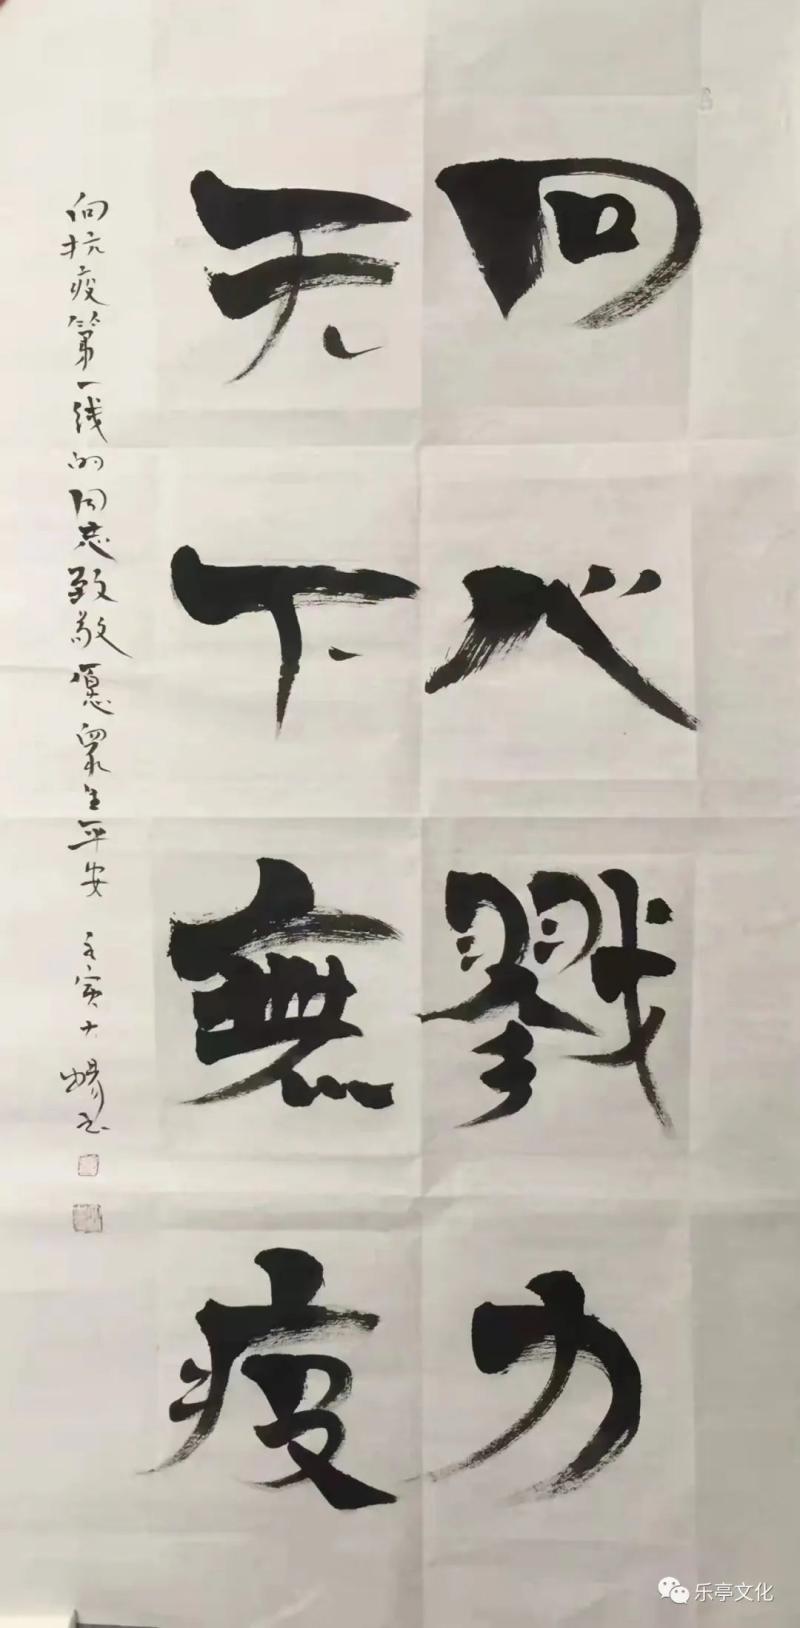 同心戮力
天下無疫
向抗疫第一线的同志致敬愿眾生平安 壬寅大畅书
乐亭文化